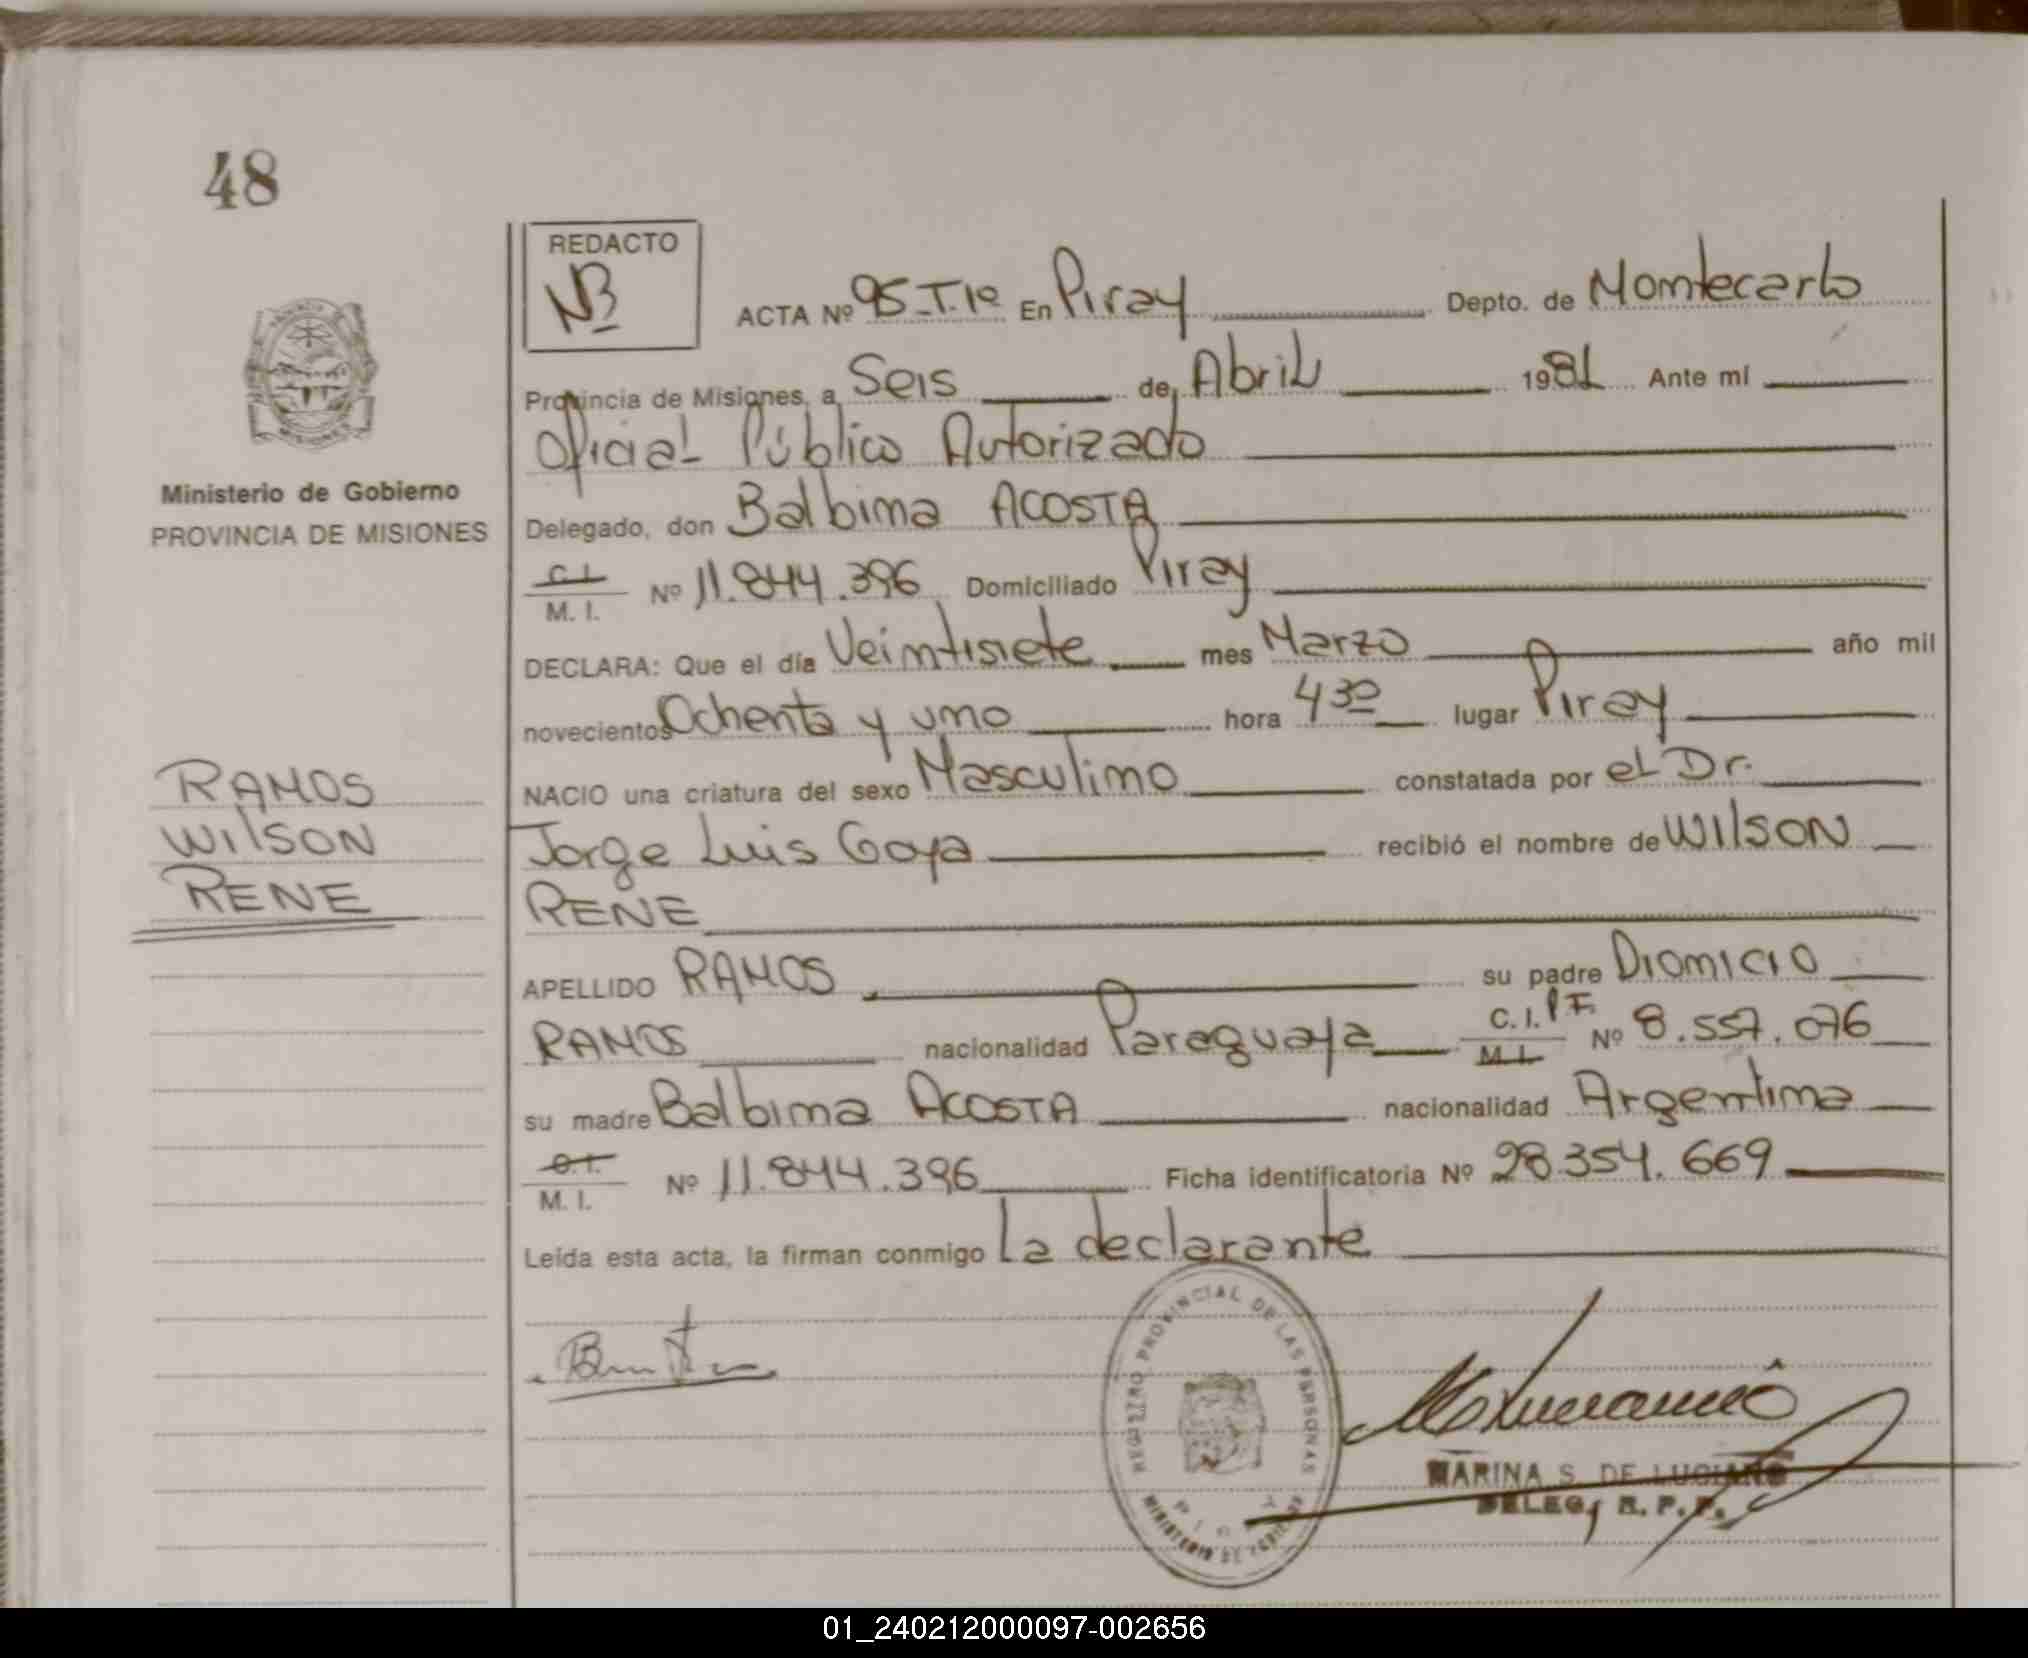 48
REDACTO
NB
ACTA Nº 95-T.1º En Piray Depto. de Montecarlo
Provincia de Misiones, a Seis de Abril 1981 Ante mí
Oficial Público Autorizado
Ministerio de Gobierno
PROVINCIA DE MISIONES
Delegado, don Balbina ACOSTA
C.I.
M. I. Nº 11.844.396 Domiciliado Piray
DECLARA: Que el día Veintisiete mes Marzo año mil
novecientos Ochenta y uno hora 4 30 lugar Piray
NACIO una criatura del sexo Masculino constatada por el Dr.
Jorge Luis Goya recibió el nombre de WILSON
RENE
RAMOS
WILSON
RENE
APELLIDO RAMOS su padre DIONICIO
RAMOS nacionalidad Paraguaya C.I. P.F. M.I. Nº 8.557.076
su madre Balbina ACOSTA nacionalidad Argentina
C.I.
M. I. Nº 11.844.396 Ficha identificatoria Nº 28.354.669
Leída esta acta, la firman conmigo La declarante
REGISTRO PROVINCIAL DE LAS PERSONAS
MINISTERIO DE GOBIERNO
PIRAY
MARINA S. DE LUCIANO
DELEG. R. P. P.
01_240212000097-002656